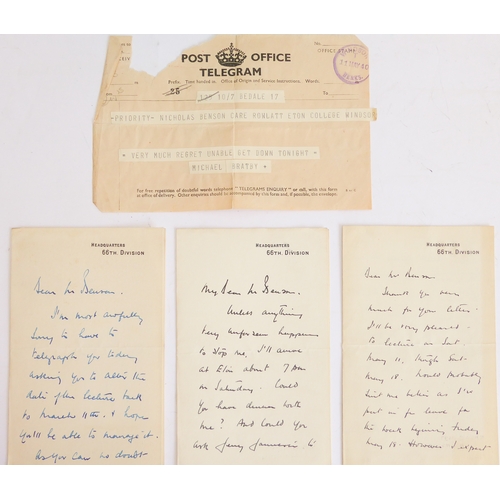 POST OFFICE
TELEGRAM
Prefix. Time handed in. Office of Origin and Service Instructions. Words.
OFFICE STAMP
No.
25
To
PRIORITY - NICHOLAS BENSON CARE ROWLATT ETON COLLEGE WINDSOR
VERY MUCH REGRET UNABLE GET DOWN TONIGHT
MICHAEL
For free repetition of doubtful words telephone "TELEGRAMS ENQUIRY" or call, with this form
at office of delivery. Other enquiries should be accompanied by this form and, if possible, the envelope.
HEADQUARTERS
66TH. DIVISION
Dear Mr Benson.
I'm most awfully
sorry to have to
telegraph you today
asking you to alter the
date of the lecture back
to March 11th. I hope
you'll be able to manage it.
As you can no doubt
HEADQUARTERS
66TH. DIVISION
My Dear Mr Benson.
Unless anything
very unforseen happens
to stop me, I'll arrive
at Eton about 7 PM
on Saturday. Could
you have dinner with
me? And could you
ask to
HEADQUARTERS
66TH. DIVISION
Dear Mr Benson
Thank you very
much for your letter.
I'll be very pleased
to lecture on Sat
May 11, Sat
May 18. Would probably
suit me better as I've
put in for leave for
the week beginning Friday
May 18. However I expect